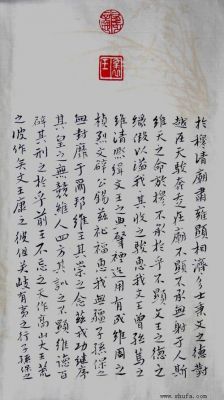 於穆清廟肅雝顯相濟多士秉文之德對
越在天駿奔走在廟不顯不承無射于人斯
維天之命於穆不已於乎不顯文王之德之
純假以溢我我其收之駿惠我文王曾孫篤之
維清緝熙文王之典肇禋迄用有成維周之
禎烈文辟公錫茲祉福惠我無疆子孫保之
無封靡于爾邦維王其崇之念茲戎功繼序
其皇之無競維人四方其訓之不顯維德百
辟其刑之於乎前王不忘天作高山大王荒
之彼作矣文王康之彼徂矣岐有夷之行子孫保之
zhsufa.com